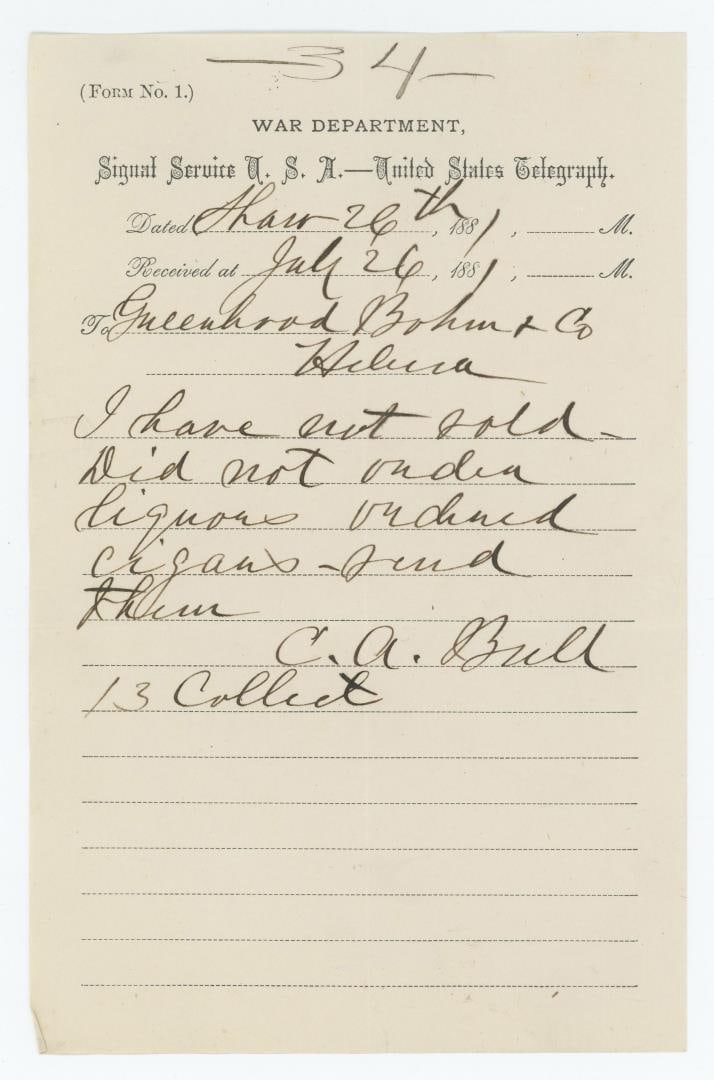 —34—
(Form No. 1.)
WAR DEPARTMENT,
Signal Service U. S. A.—United States Telegraph.
Dated Shaw 26th, 1881, M.
Received at July 26, 1881, M.
To Greenhood Bohm & Co
Helena
I have not sold -
Did not order
liquors ordered
cigars - send
them
C. A. Bull
13 Collect